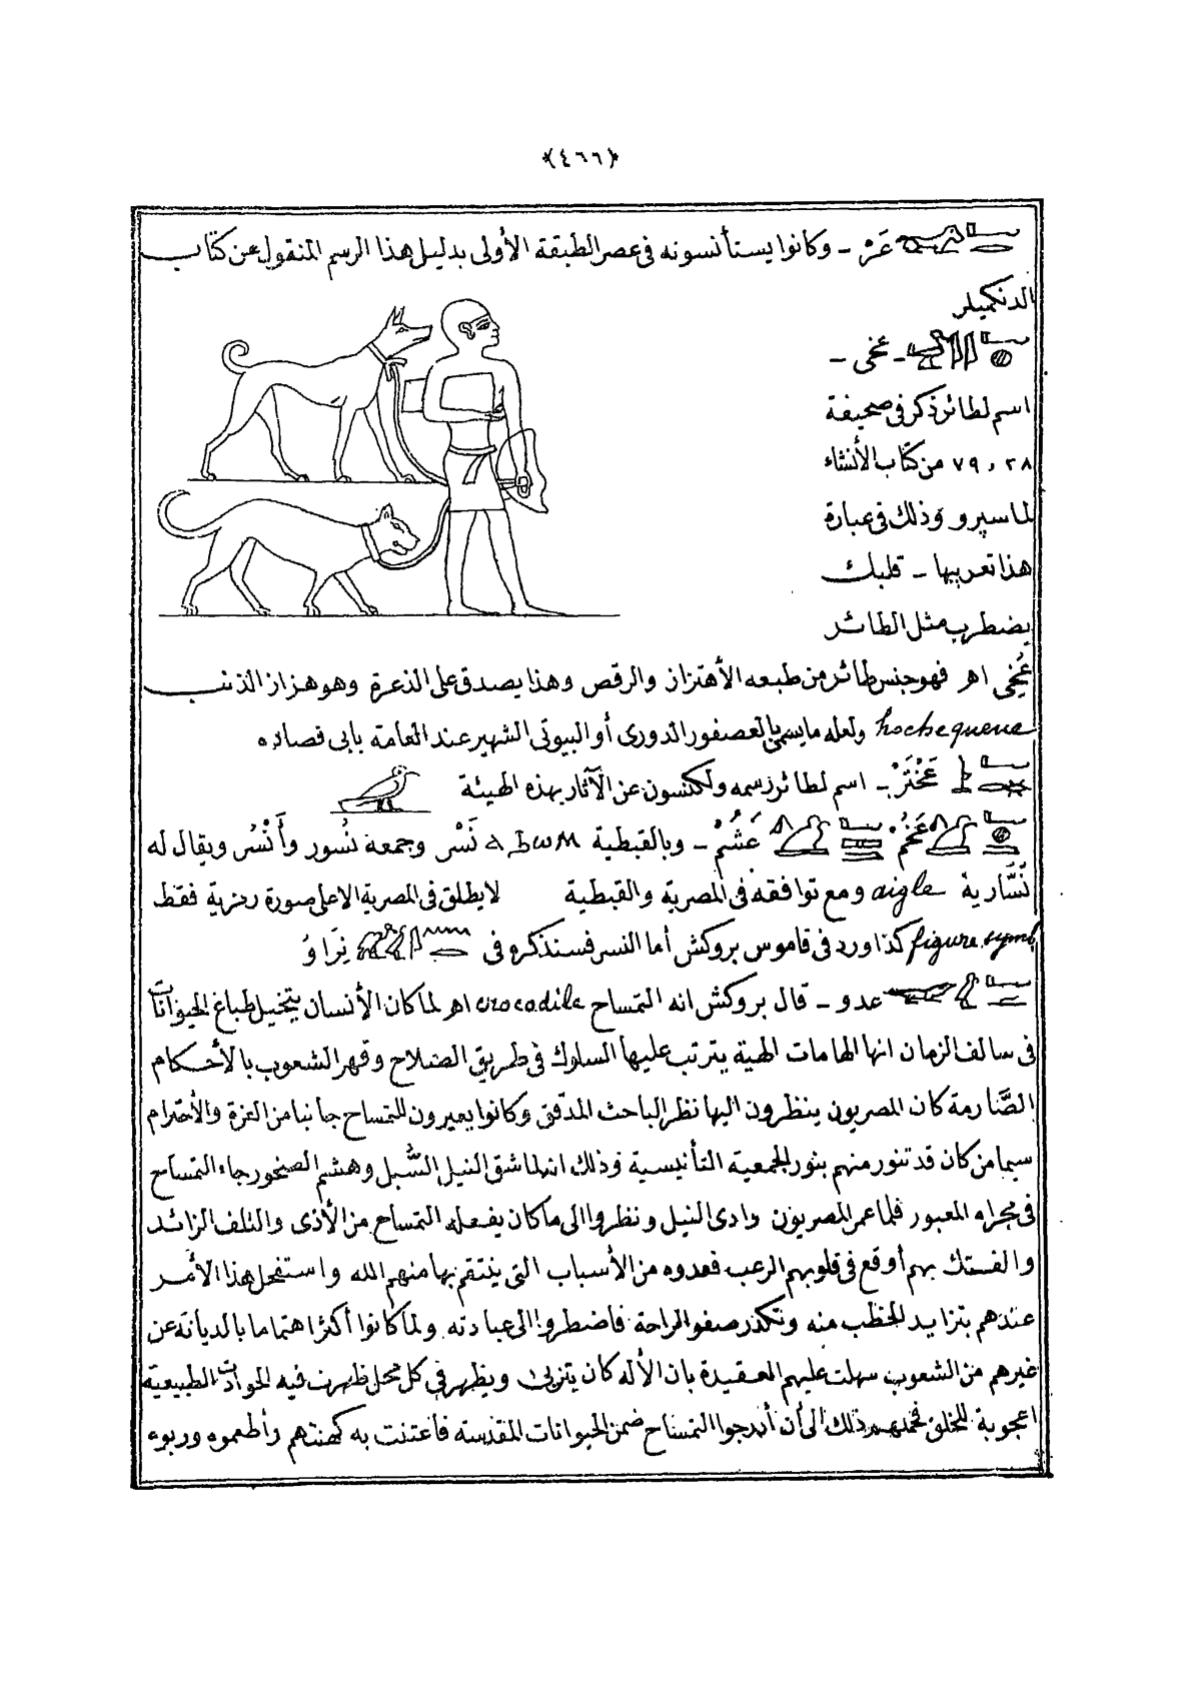 ﴿٤٦٦﴾
عَرْ – وكانوا يستأنسونه فى عصر الطبقة الأولى بدليل هذا الرسم المنقول عن كتاب
الدنكميلر
– عخى –
اسم لطائر ذكر فى صحيفة
٢٨ و ٧٩ من كتاب الأنشاء
لماسپرو وذلك فى عبارة
هذا تعريبها – قلبك
يضطرب مثل الطائر
عُخِى اهر فهو جنس طائر من طبعه الأهتزاز والرقص وهذا يصدق على الذعرة وهو هزاز الذنب
hochequeue ولعله ما يسمى بالعصفور الدورى أو البيوتى الشهير عند العامة بابى فصاده
عَخْتَرْ – اسم لطائر رسمه ولكنسون عن الآثار بهذه الهيئة
عَخُمْ عَشُمْ – وبالقبطية ⲁϧⲱⲙ نَسْر وجمعه نُسور وأَنْسُر ويقال له
نَسَّارية aigle ومع توافقه فى المصرية والقبطية لا يطلق فى المصرية الا على صورة رمزية فقط
figure symb كذا ورد فى قاموس بروكش أما النسر فسنذكره فى نِرَاوُ
عدو – قال بروكش انه التمساح crocodile اهر لما كان الأنسان يتخيل طباع الحيوانات
فى سالف الزمان انها الهامات الهية يترتب عليها السلوك فى طريق الصلاح وقهر الشعوب بالأحكام
الصَّارمة كان المصريون ينظرون اليها نظر الباحث المدقق وكانوا يعيرون للتمساح جانبا من العزة والأحترام
سيما من كان قد تنور منهم بنور الجمعية التأنيسية وذلك انه لما شق النيل السُّبل وهشم الصخور جاء التمساح
فى مجراه المعبور فلما عمر المصريون وادى النيل ونظروا الى ما كان يفعله التمساح من الأذى والتلف الزائد
والفتك بهم أوقع فى قلوبهم الرعب فعدوه من الأسباب التى ينتقم بها منهم الله واستفحل هذا الأمر
عندهم بتزايد الخطب منه وتكدر صفو الراحة فاضطروا الى عبادته ولما كانوا أكثر اهتماما بالديانة عن
غيرهم من الشعوب سهلت عليهم العقيدة بان الأله كان يتزيى ويظهر فى كل محل ظهرت فيه الحوادث الطبيعية
اعجوبة للخلق فحملهم ذلك الى أن أدرجوا التمساح ضمن الحيوانات المقدسة فاعتنت به كهنتهم وأطعموه وربوه